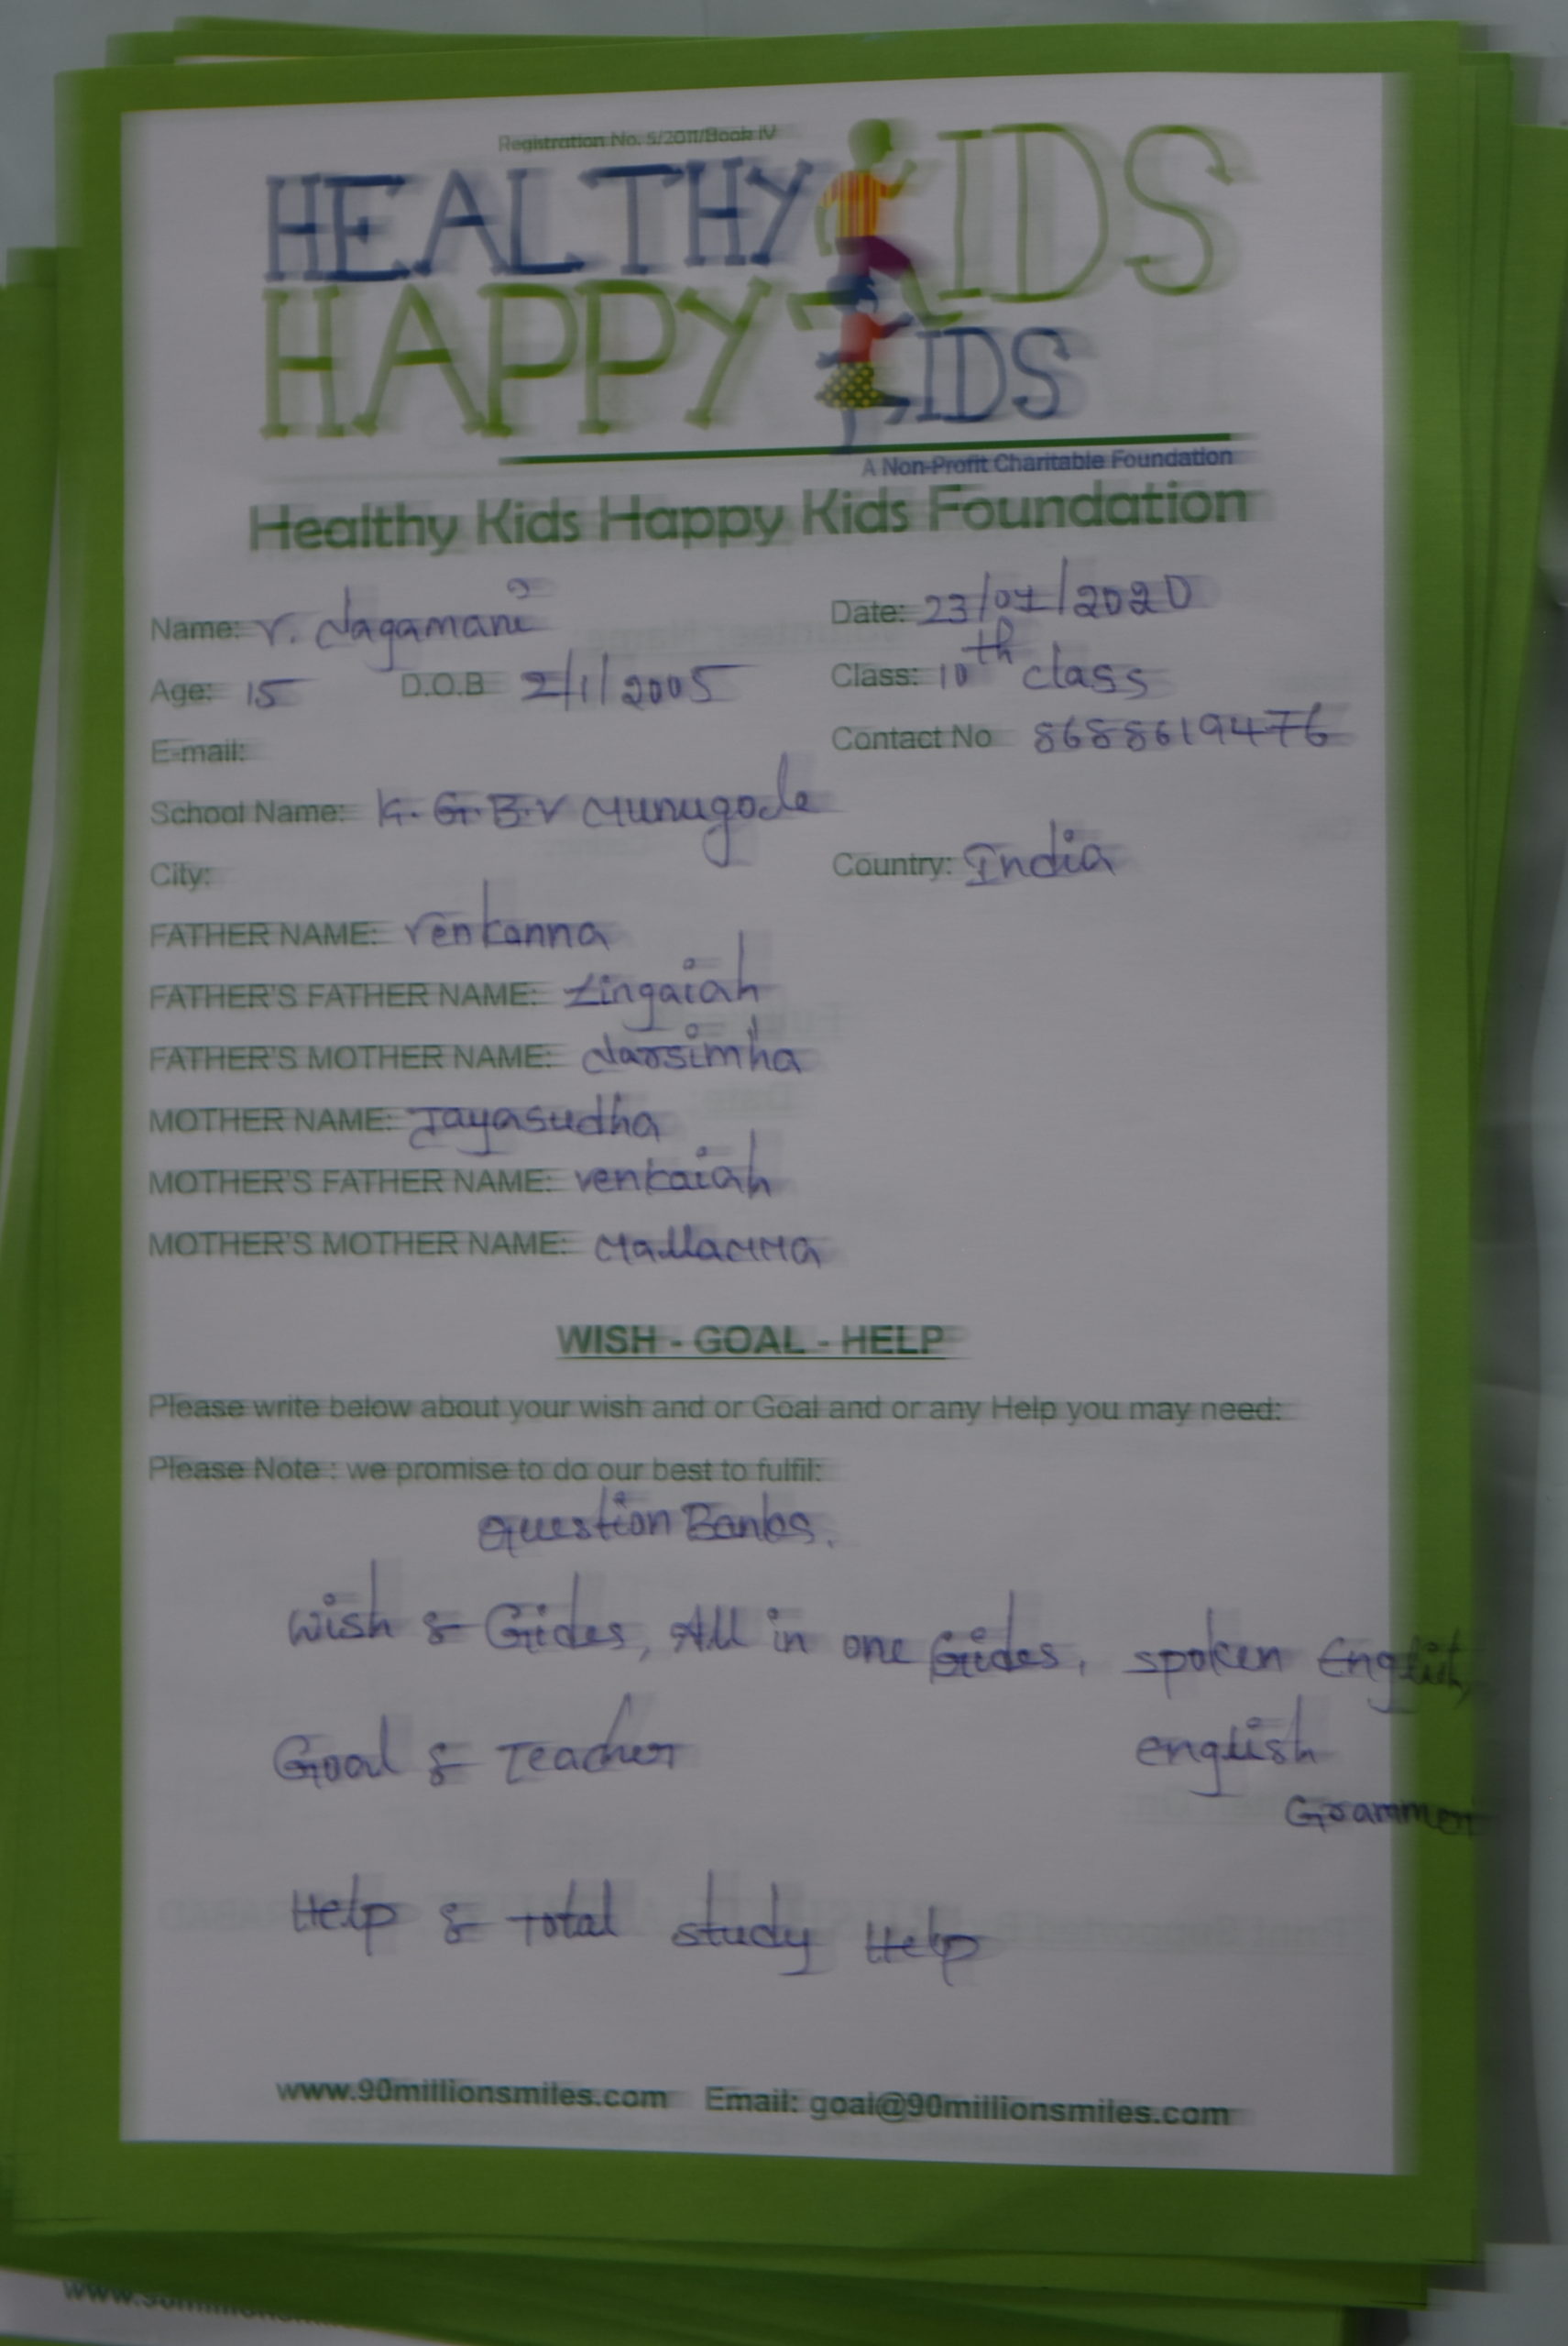 Registration No. 5/2011/Book IV
HEALTHY KIDS
HAPPY KIDS
A Non-Profit Charitable Foundation
Healthy Kids Happy Kids Foundation
Name: V. Nagamani Date: 23/01/2020
Age: 15 D.O.B 2/1/2005 Class: 10th class
E-mail: Contact No 8688619476
School Name: K.G.B.V Munugode
City: Country: India
FATHER NAME: Venkanna
FATHER'S FATHER NAME: Lingaiah
FATHER'S MOTHER NAME: Narsimha
MOTHER NAME: Jayasudha
MOTHER'S FATHER NAME: Venkaiah
MOTHER'S MOTHER NAME: Mallamma
WISH - GOAL - HELP
Please write below about your wish and or Goal and or any Help you may need:
Please Note : we promise to do our best to fulfil:
Question Banks.
Wish & Gides, All in one Gides, spoken English,
Goal & Teacher english
Grammer
Help & Total study Help
www.90millionsmiles.com Email: goal@90millionsmiles.com